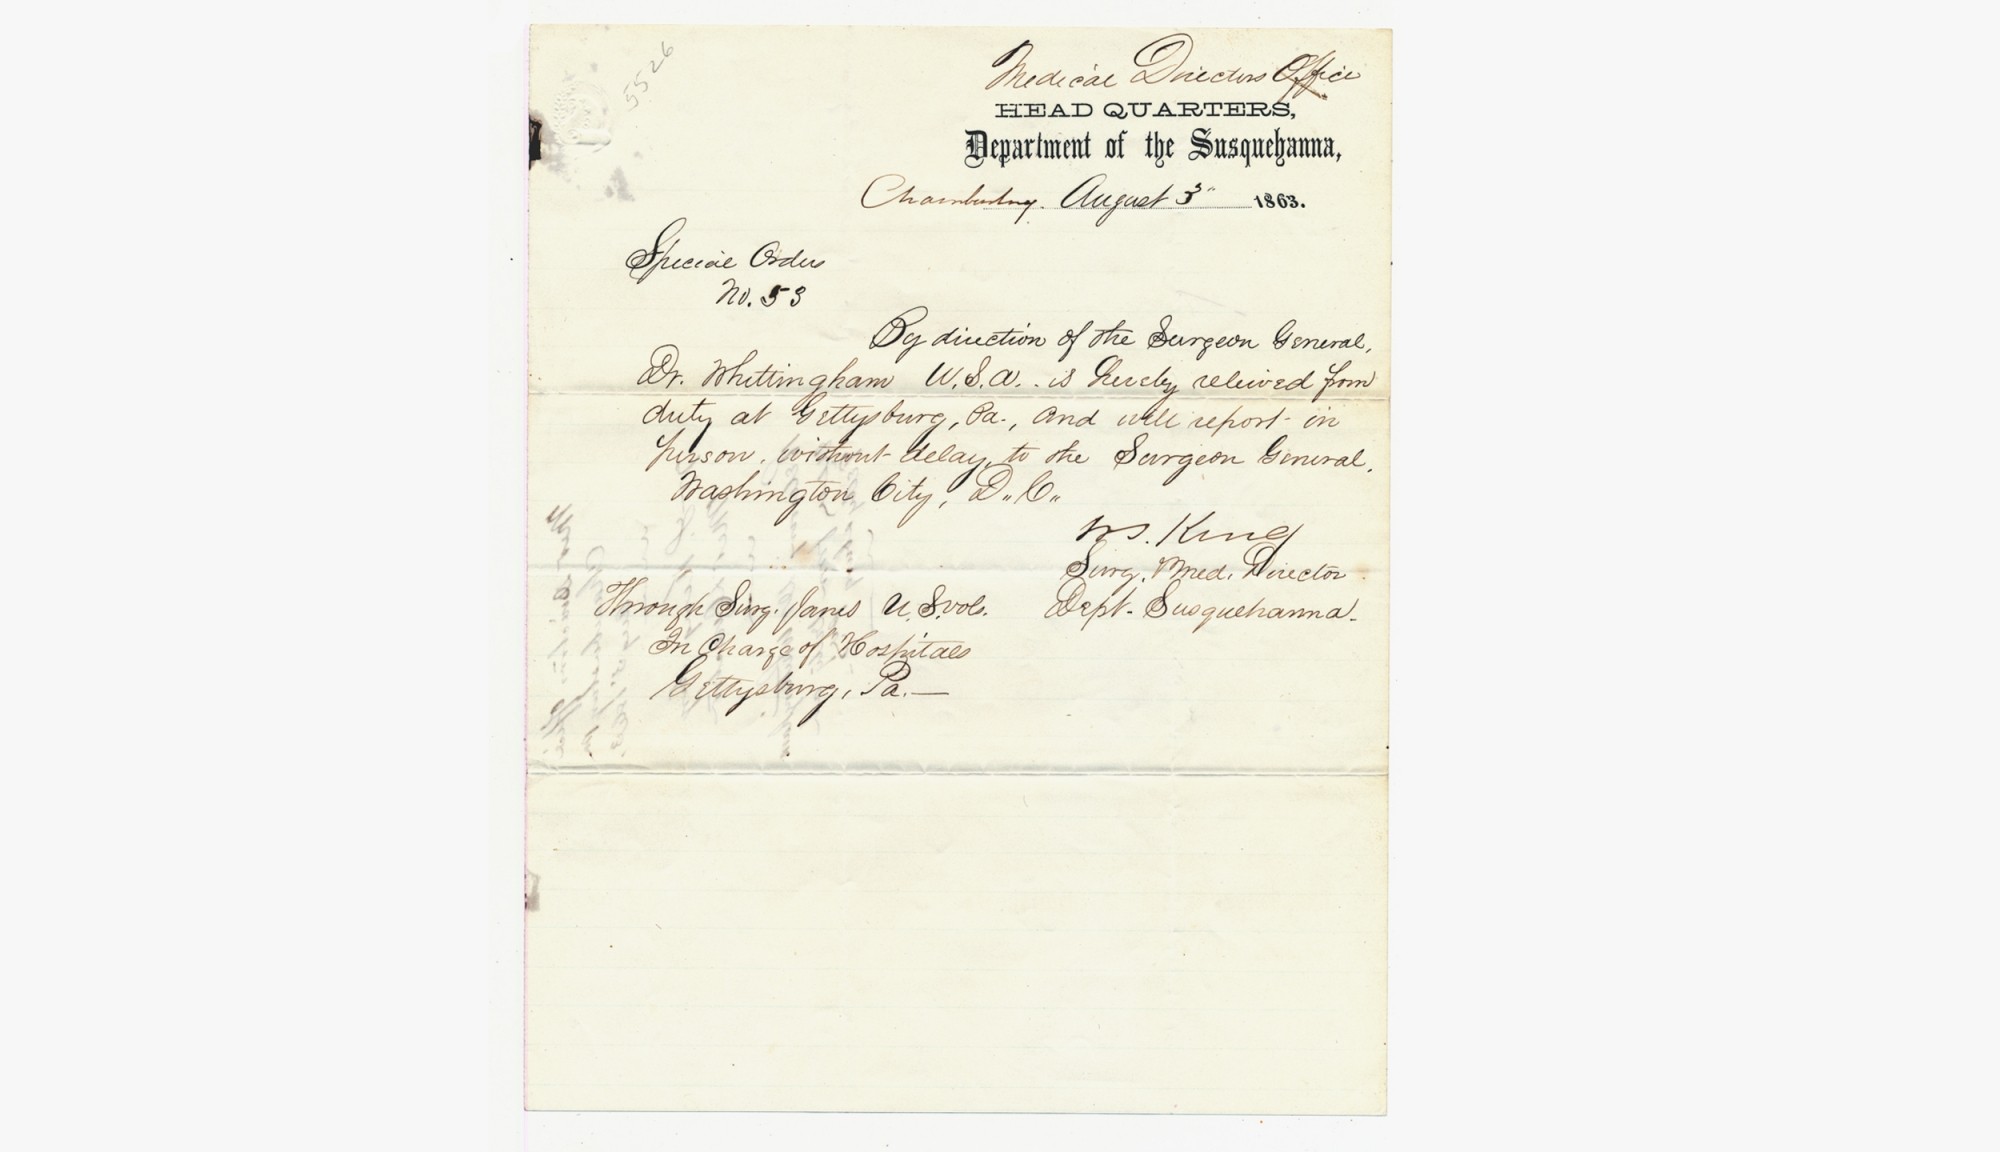 5526
Medical Directors Office
HEAD QUARTERS,
Department of the Susquehanna,
Chambersburg. August 3" 1863.
Special Orders
No. 53
By direction of the Surgeon General,
Dr. Whittingham U.S.A. is hereby releived from
duty at Gettysburg, Pa., and will report in
person, without delay, to the Surgeon General,
Washington City, D.C.
W.S. King
Surg. Med. Director
Dept. Susquehanna.
Through Surg. Janes U.S. vols.
In Charge of Hospitals
Gettysburg, Pa.—